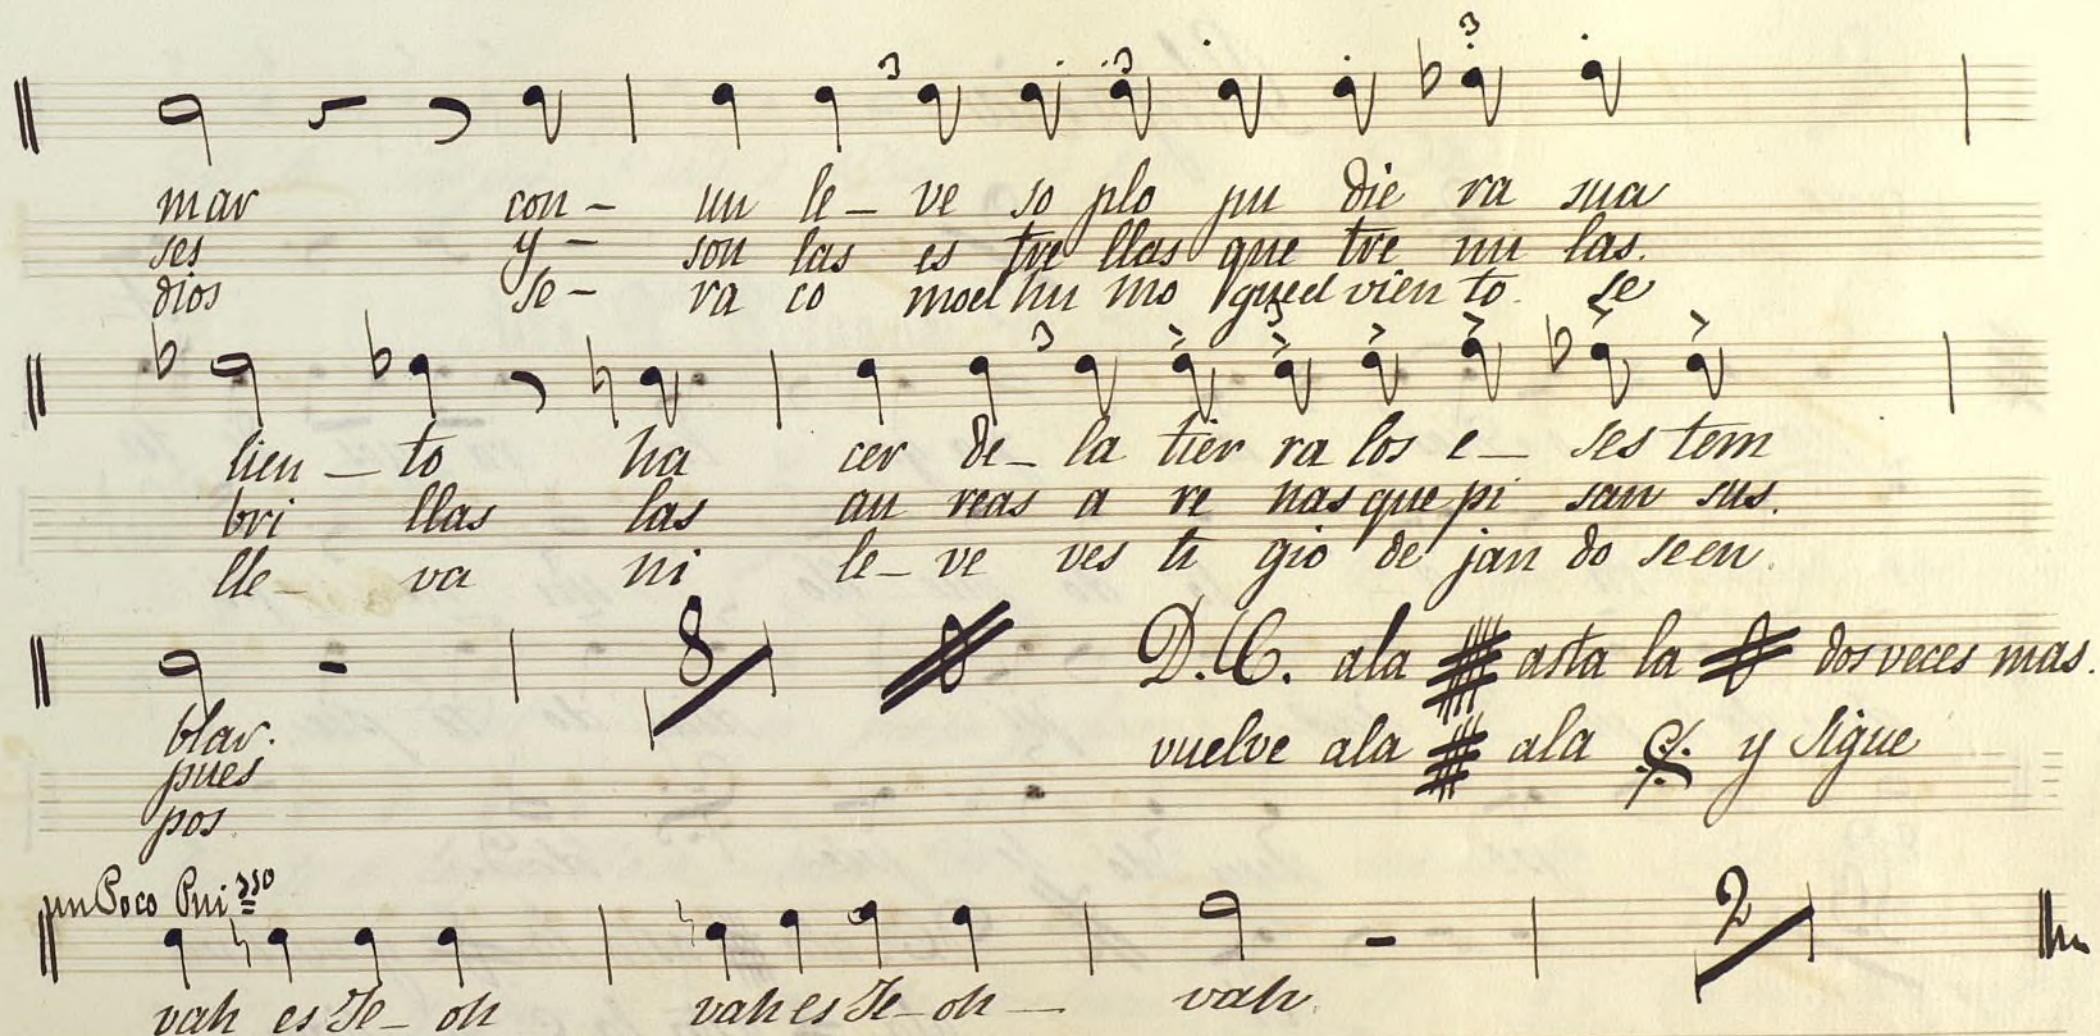 mar con - un le - ve so plo pu die ra sua
ses y - son las es tre llas que tre mu las.
dios se - ra co moel hu mo queel vien to. se
lien - to ha cer de - la tier ra los e - jes tem
bri llas las au reas a re nas que pi san sus.
lle - va ni le - ve ves ti gio de jan do seen.
8 D.C. ala asta la dos veces mas.
blar. vuelve ala ala y sigue
pues
pos.
un Poco
2
vah es Je - oh vah es Je - oh - vah.